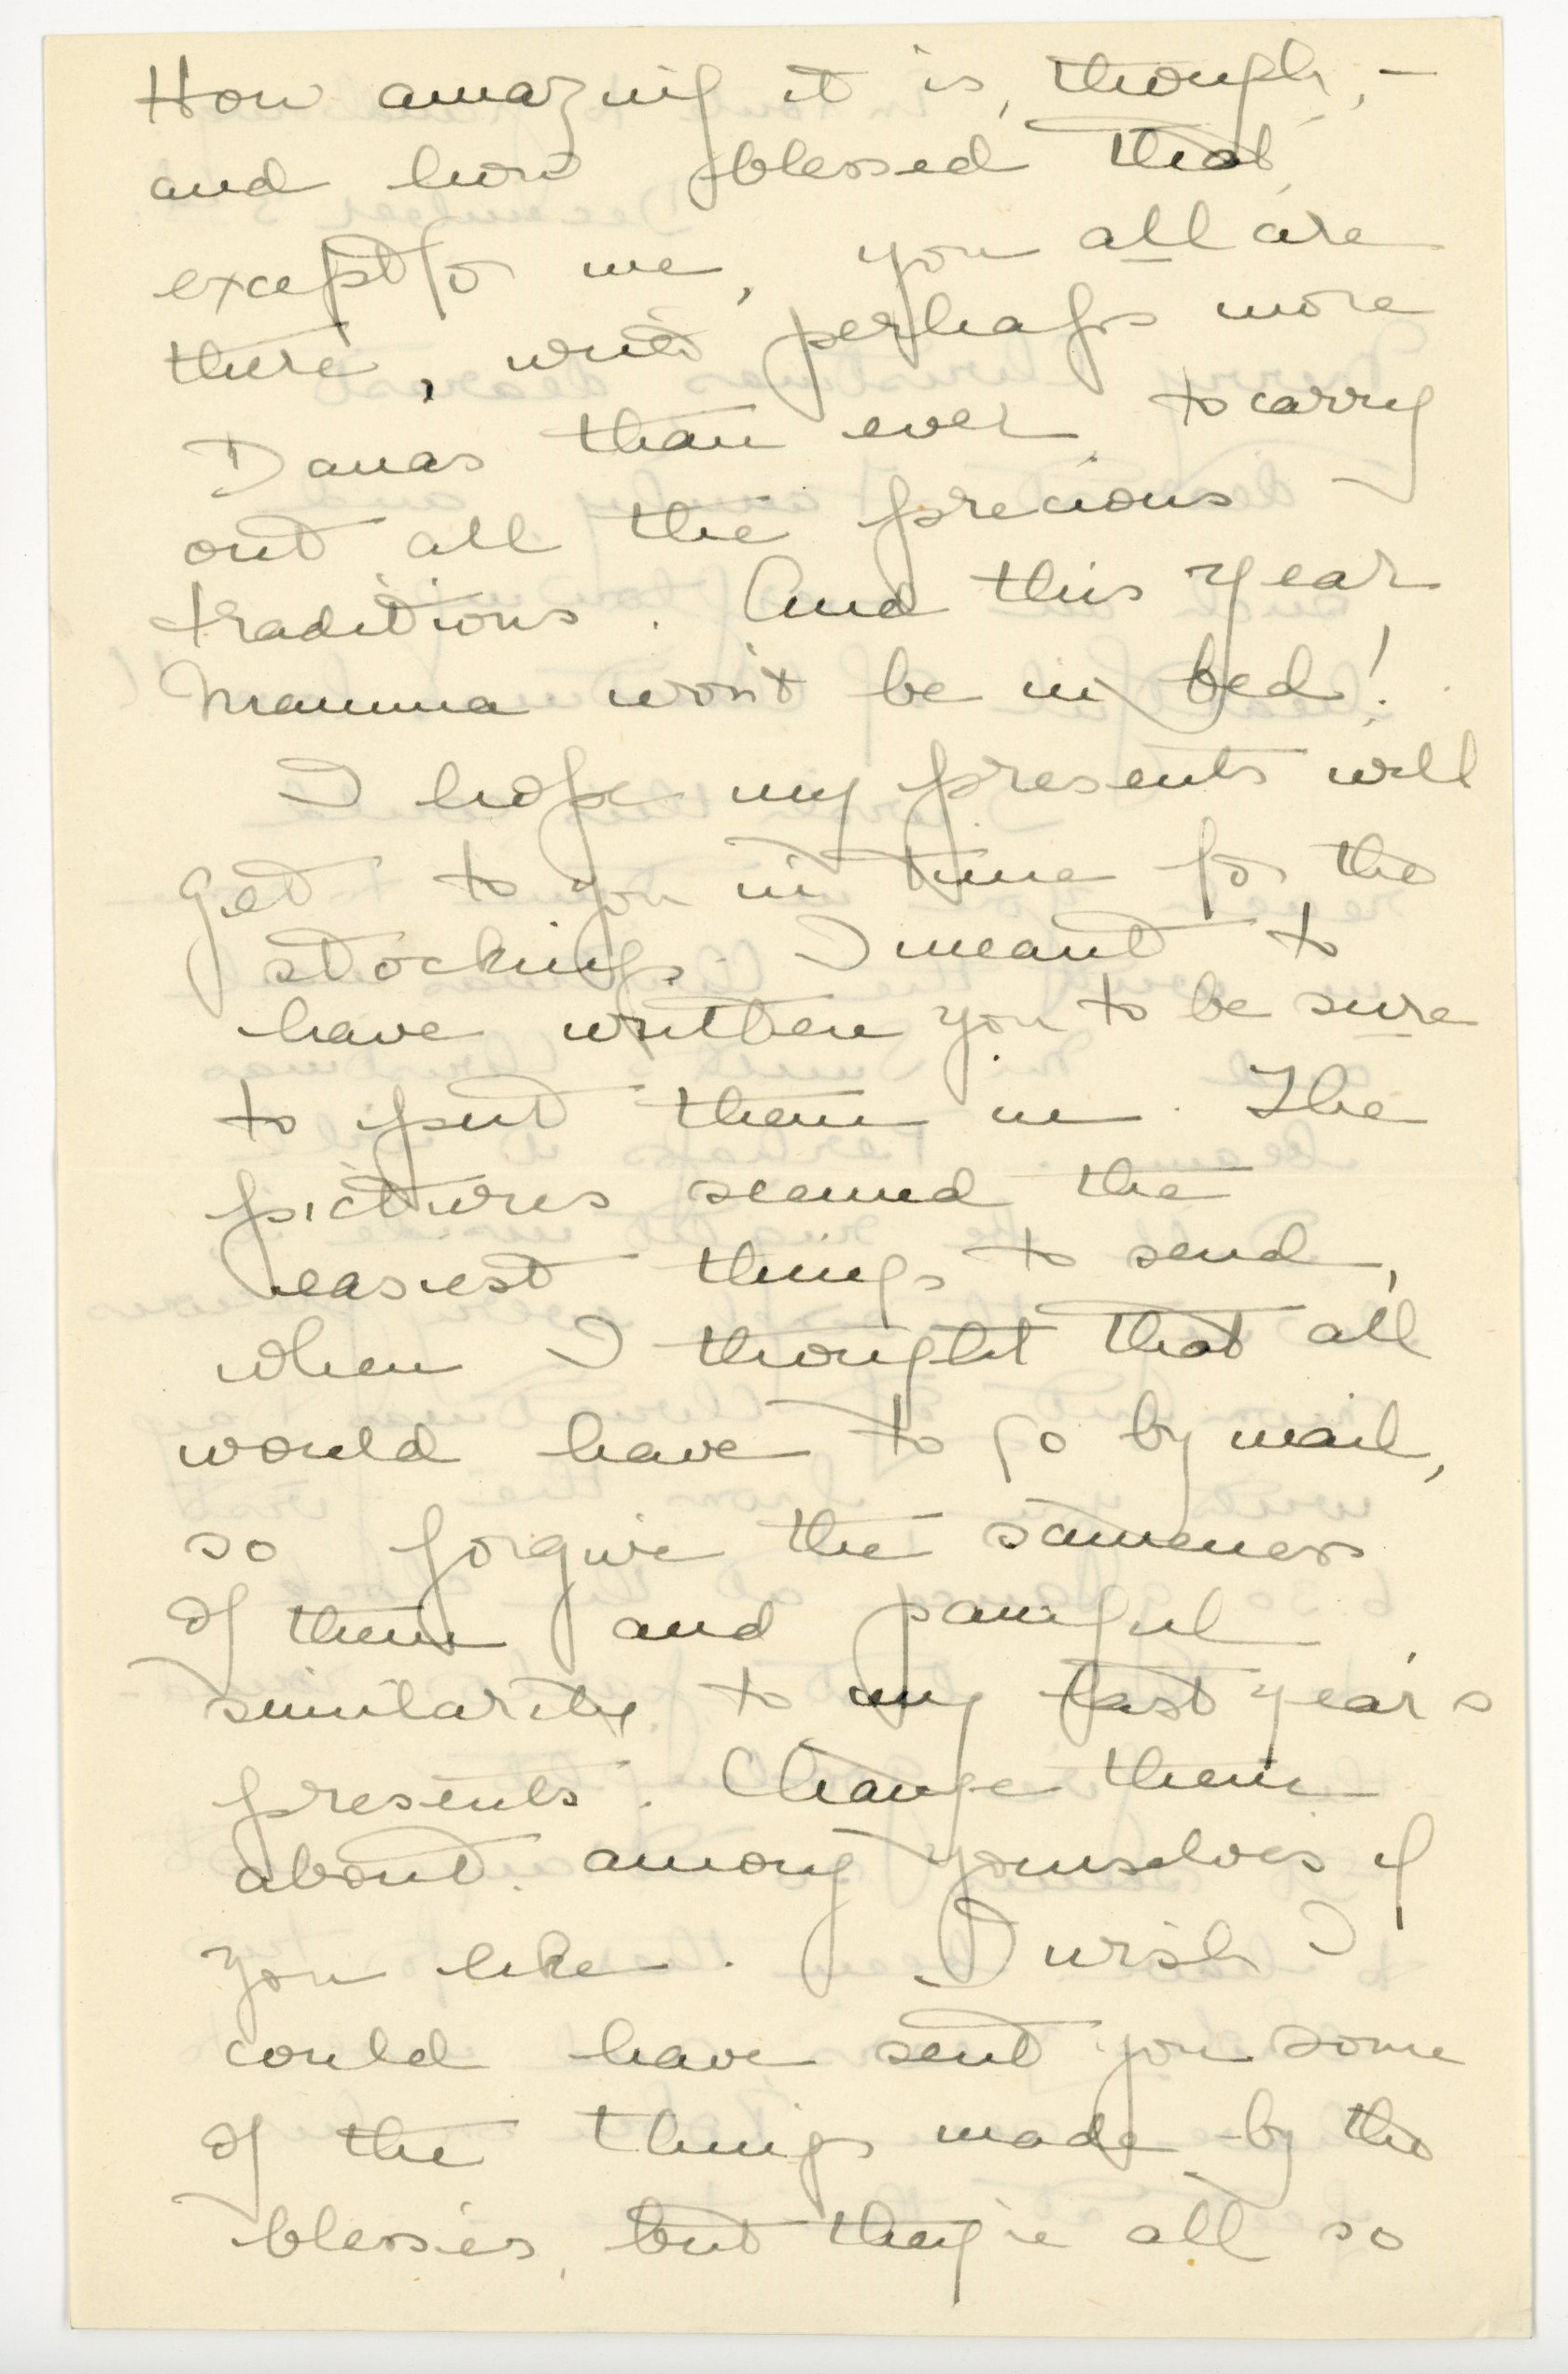 How amazing it is, though, –
and how blessed that,
except for me, you all are
there, with perhaps more
Danas than ever, to carry
out all the precious
traditions. And this year
Mamma won't be in bed!
I hope my presents will
get to you in time for the
stockings. I meant to
have written you to be sure
to put them in. The
pictures seemed the
easiest things to send,
when I thought that all
would have to go by mail,
so forgive the sameness
of them and painful
similarity to my last year's
presents. Change them
about among yourselves if
you like. I wish I
could have sent you some
of the things made by the
blessés, but they're all so